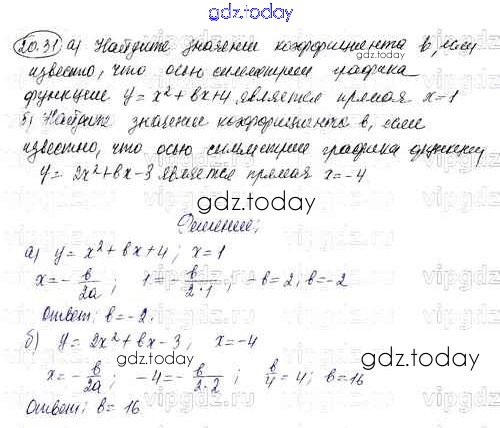 gdz.today
20.31 а) Найдите значение коэффициента b, если
известно, что осью симметрии графика
функции y = x² + bx + 4 является прямая x = 1
б) Найдите значение коэффициента b, если
известно, что осью симметрии графика функции
y = 2x² + bx - 3 является прямая x = -4
gdz.today
Решение:
а) y = x² + bx + 4; x = 1
x = - b/2a; 1 = - b/2·1; -b = 2; b = -2
Ответ: b = -2.
б) y = 2x² + bx - 3; x = -4
x = - b/2a; -4 = - b/2·2; b/4 = 4; b = 16
Ответ: b = 16
gdz.today
vipgdz
vipgdz
vipgdz
gdz.today